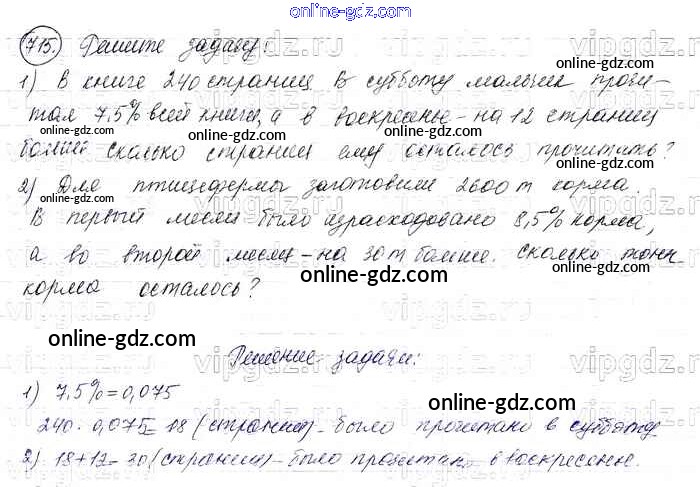 online-gdz.com
715. Решите задачу:
1) В книге 240 страниц. В субботу мальчик прочи-
тал 7,5% всей книги, а в воскресенье - на 12 страниц
online-gdz.com online-gdz.com
больше сколько страниц ему осталось прочитать?
2) Для птицефермы заготовили 2600 т корма.
В первый месяц было израсходовано 8,5% корма,
online-gdz.com
а во второй месяц - на 30 т больше. Сколько тонн
online-gdz.com
корма осталось?
online-gdz.com
vipgdz.ru vipgdz.ru vipgdz.ru
Решение задачи:
1) 7,5% = 0,075
online-gdz.com
240 · 0,075 = 18 (страниц) - было прочитано в субботу
online-gdz.com
2) 18+12 = 30 (страниц) - было прочитано в воскресенье.
online-gdz.com